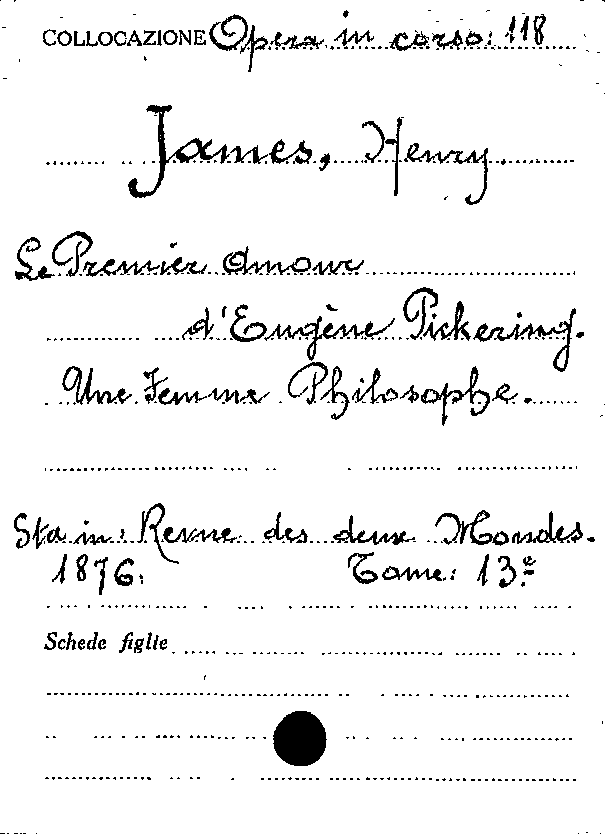 COLLOCAZIONE Opera in corso: 118
James, Henry.
Le Premier Amour
d'Eugène Pickering.
Une Femme Philosophe.
Sta in: Revue des deux Mondes.
1876. Tome: 13.e
Schede figlie